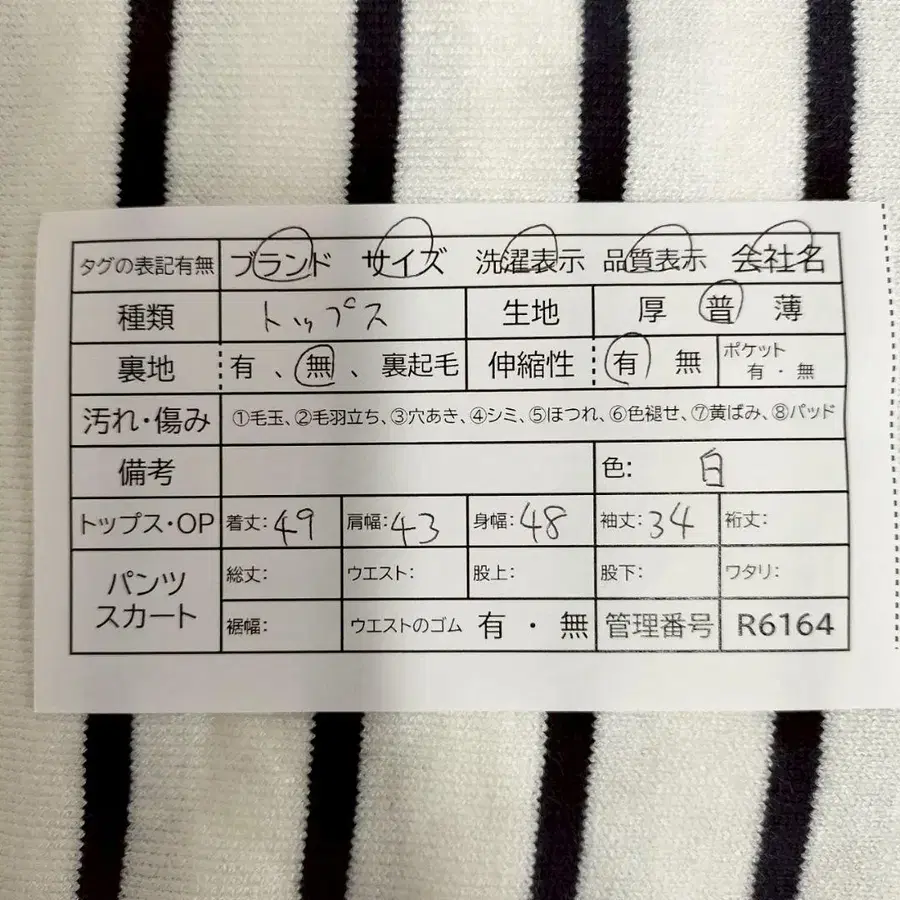 タグの表記有無 ブランド サイズ 洗濯表示 品質表示 会社名
種類 トップス 生地 厚 普 薄
裏地 有 、無 、裏起毛 伸縮性 有 無 ポケット 有・無
汚れ・傷み ①毛玉、②毛羽立ち、③穴あき、④シミ、⑤ほつれ、⑥色褪せ、⑦黄ばみ、⑧パッド
備考 色: 白
トップス・OP 着丈:49 肩幅:43 身幅:48 袖丈:34 裄丈:
パンツ スカート 総丈: ウエスト: 股上: 股下: ワタリ:
裾幅: ウエストのゴム 有・無 管理番号 R6164